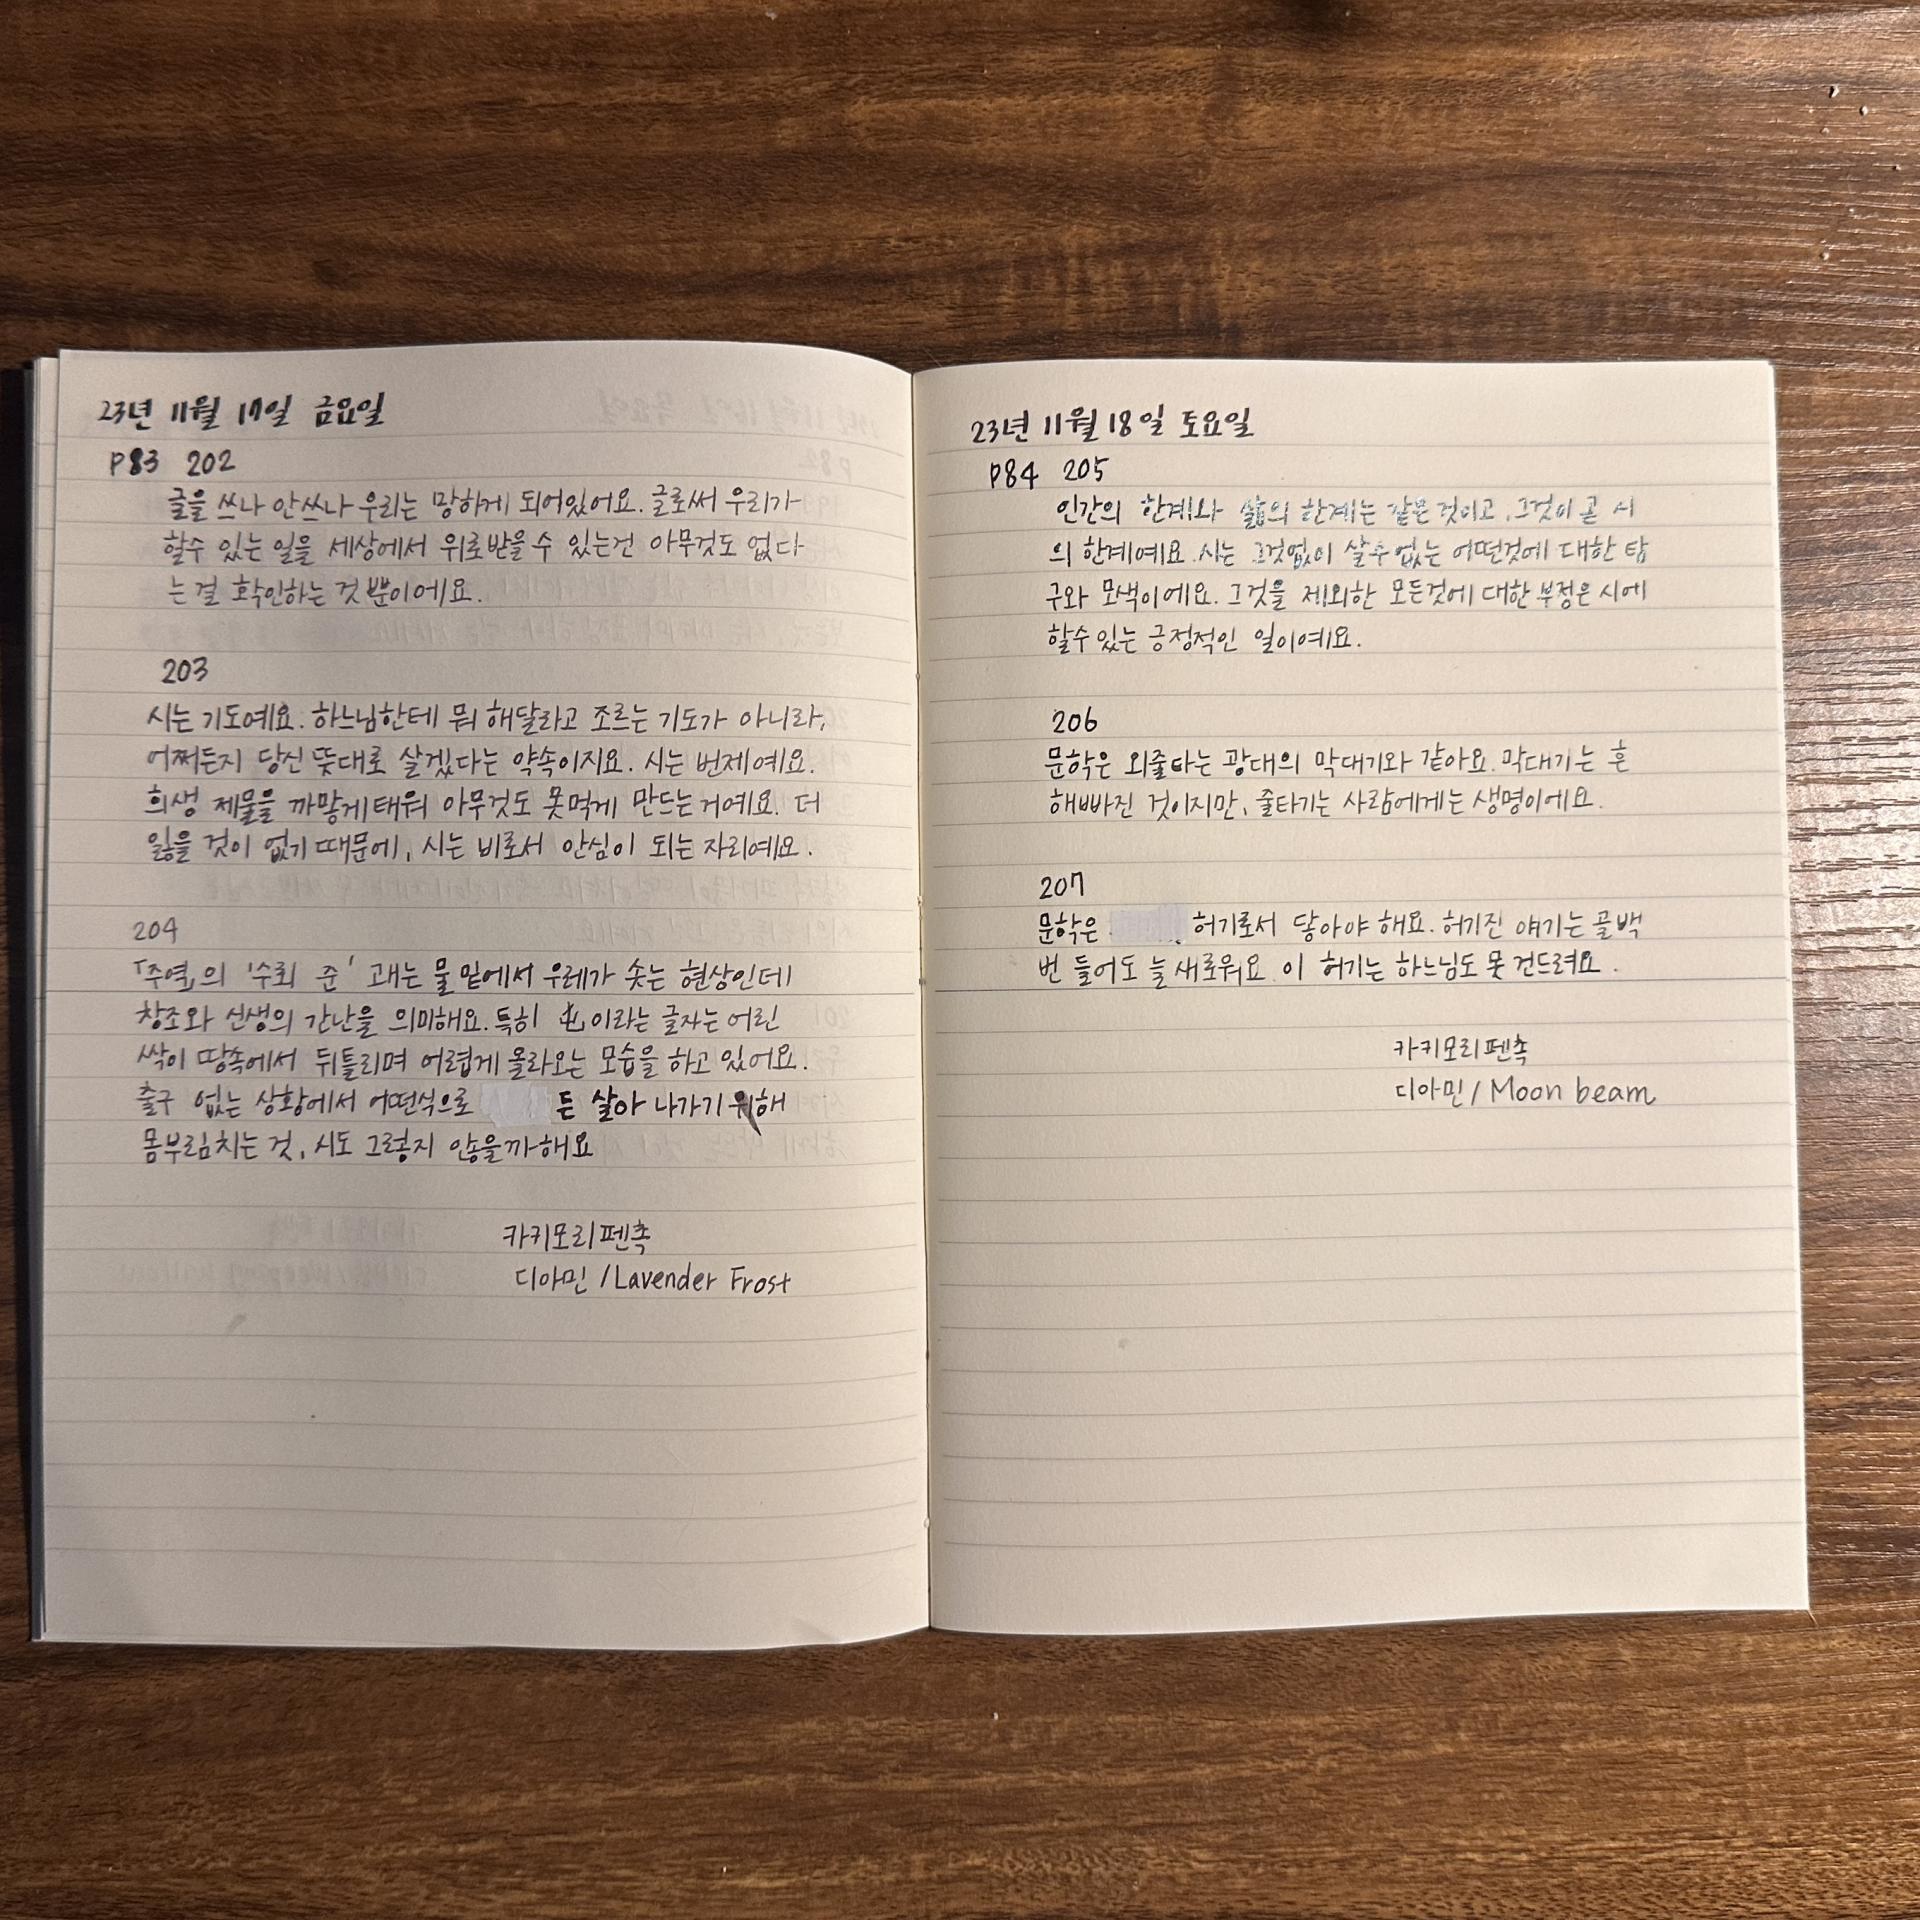 23년 11월 17일 금요일
P83 202
글을 쓰나 안쓰나 우리는 망하게 되어있어요. 글로써 우리가
할수 있는 일을 세상에서 위로받을 수 있는건 아무것도 없다
는 걸 확인하는 것 뿐이에요.
203
시는 기도예요. 하느님한테 뭐 해달라고 조르는 기도가 아니라,
어쩌든지 당신 뜻대로 살겠다는 약속이지요. 시는 번제예요.
희생 제물을 까맣게 태워 아무것도 못먹게 만드는 거예요. 더
잃을 것이 없기 때문에, 시는 비로서 안심이 되는 자리예요.
204
「주역」의 '수뢰 준' 괘는 물 밑에서 우레가 솟는 현상인데
창조와 신생의 간난을 의미해요. 특히 屯이라는 글자는 어린
싹이 땅속에서 뒤틀리며 어렵게 올라오는 모습을 하고 있어요.
출구 없는 상황에서 어떤식으로 든 살아 나가기 위해
몸부림 치는 것, 시도 그렇지 않을까 해요
카키모리 펜촉
디아민 / Lavender Frost
23년 11월 18일 토요일
P84 205
인간의 한계와 삶의 한계는 같은 것이고, 그것이 곧 시
의 한계예요. 시는 그것없이 살수 없는 어떤것에 대한 탐
구와 모색이예요. 그것을 제외한 모든것에 대한 부정은 시에
할수 있는 긍정적인 일이예요.
206
문학은 외줄타는 광대의 막대기와 같아요. 막대기는 흔
해빠진 것이지만, 줄타기는 사람에게는 생명이에요.
207
문학은 허기로서 닿아야 해요. 허기진 얘기는 골백
번 들어도 늘 새로워요. 이 허기는 하느님도 못 건드려요.
카키모리 펜촉
디아민 / Moon beam